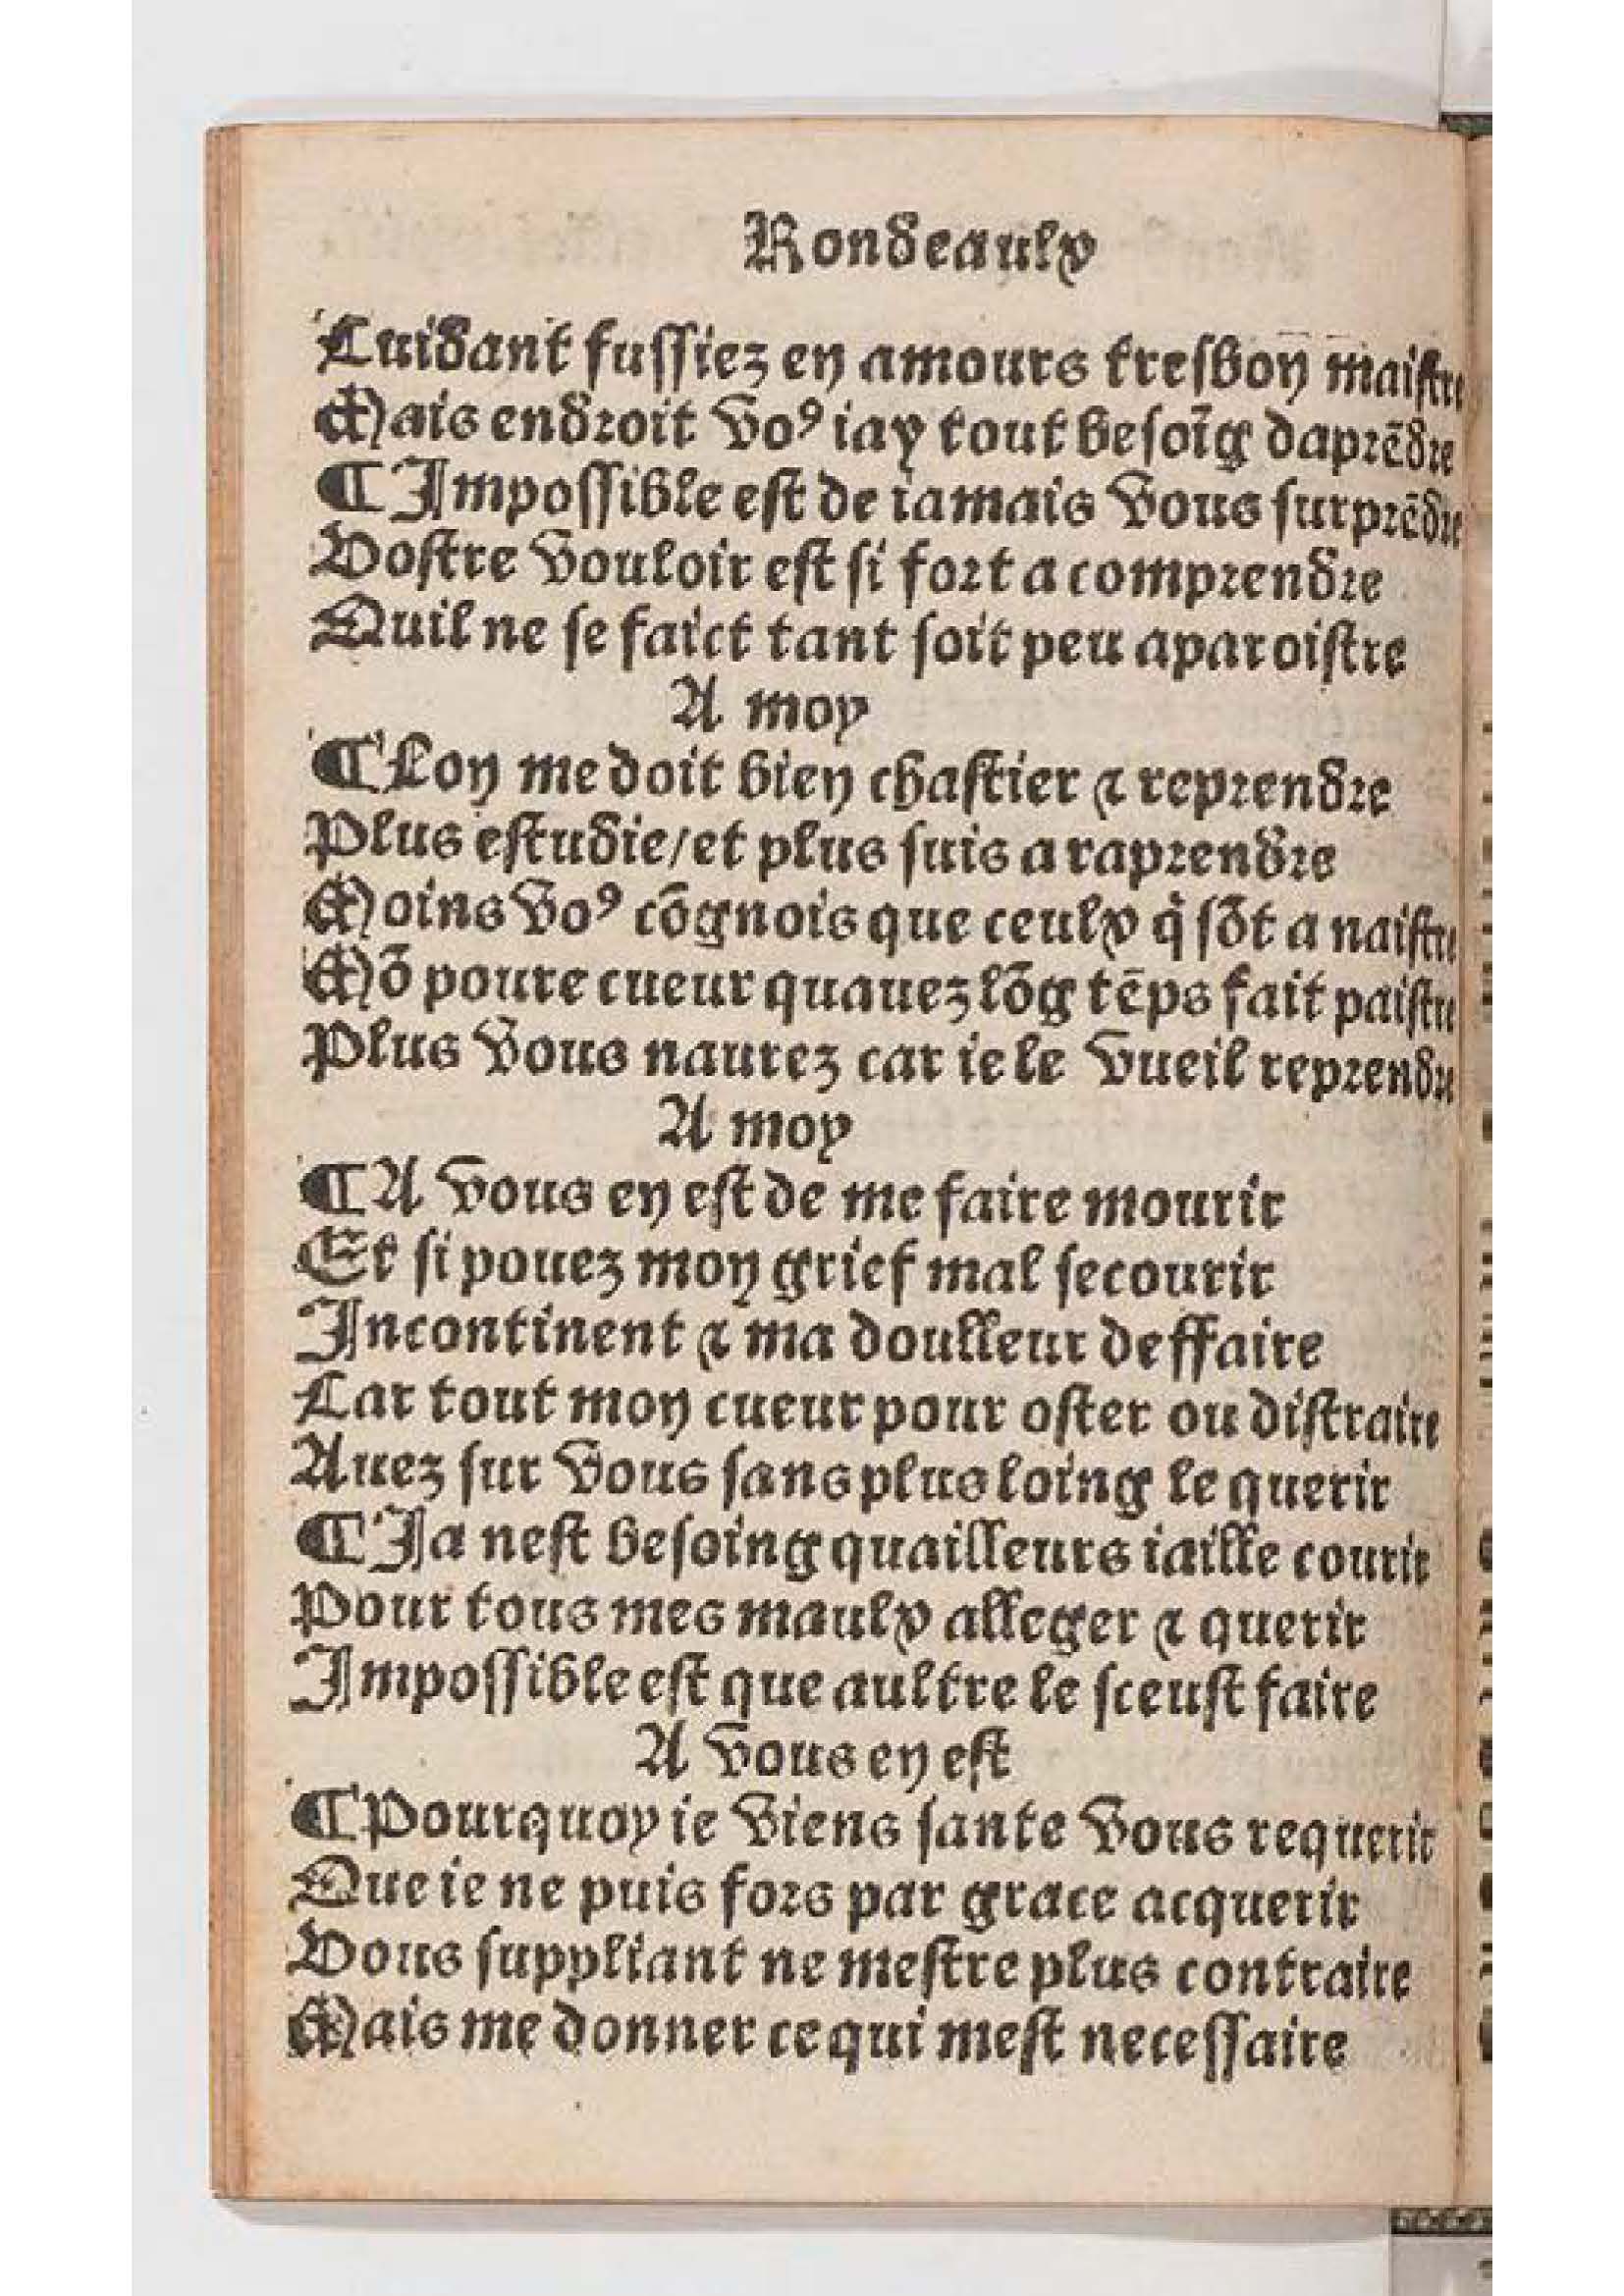 Rondeaulx
Cuidant fussiez en amours tresbon maistre
Mais endroit voꝰ iay tout besoīg daprēdre
¶ Impossible est de iamais vous surprēdre
Vostre vouloir est si fort a comprendre
Quil ne se faict tant soit peu aparoistre
A moy
¶ Lon me doit bien chastier ⁊ reprendre
Plus estudie/et plus suis a raprendre
Moins voꝰ cōgnois que ceulx q̇ sōt a naistre
Mō poure cueur quauez lōg tēps fait paistre
Plus vous naurez car ie le vueil reprendre
A moy
¶ A vous en est de me faire mourir
Et si pouez mon grief mal secourir
Incontinent ⁊ ma doulleur deffaire
Car tout mon cueur pour oster ou distraire
Auez sur vous sans plus loing le querir
¶ Ja nest besoing quailleurs iaille courir
Pour tous mes maulx alleger ⁊ querir
Impossible est que aultre le sceust faire
A vous en est
¶ Pourquoy ie viens sante vous requerir
Que ie ne puis fors par grace acquerir
Vous suppliant ne mestre plus contraire
Mais me donner ce qui mest necessaire